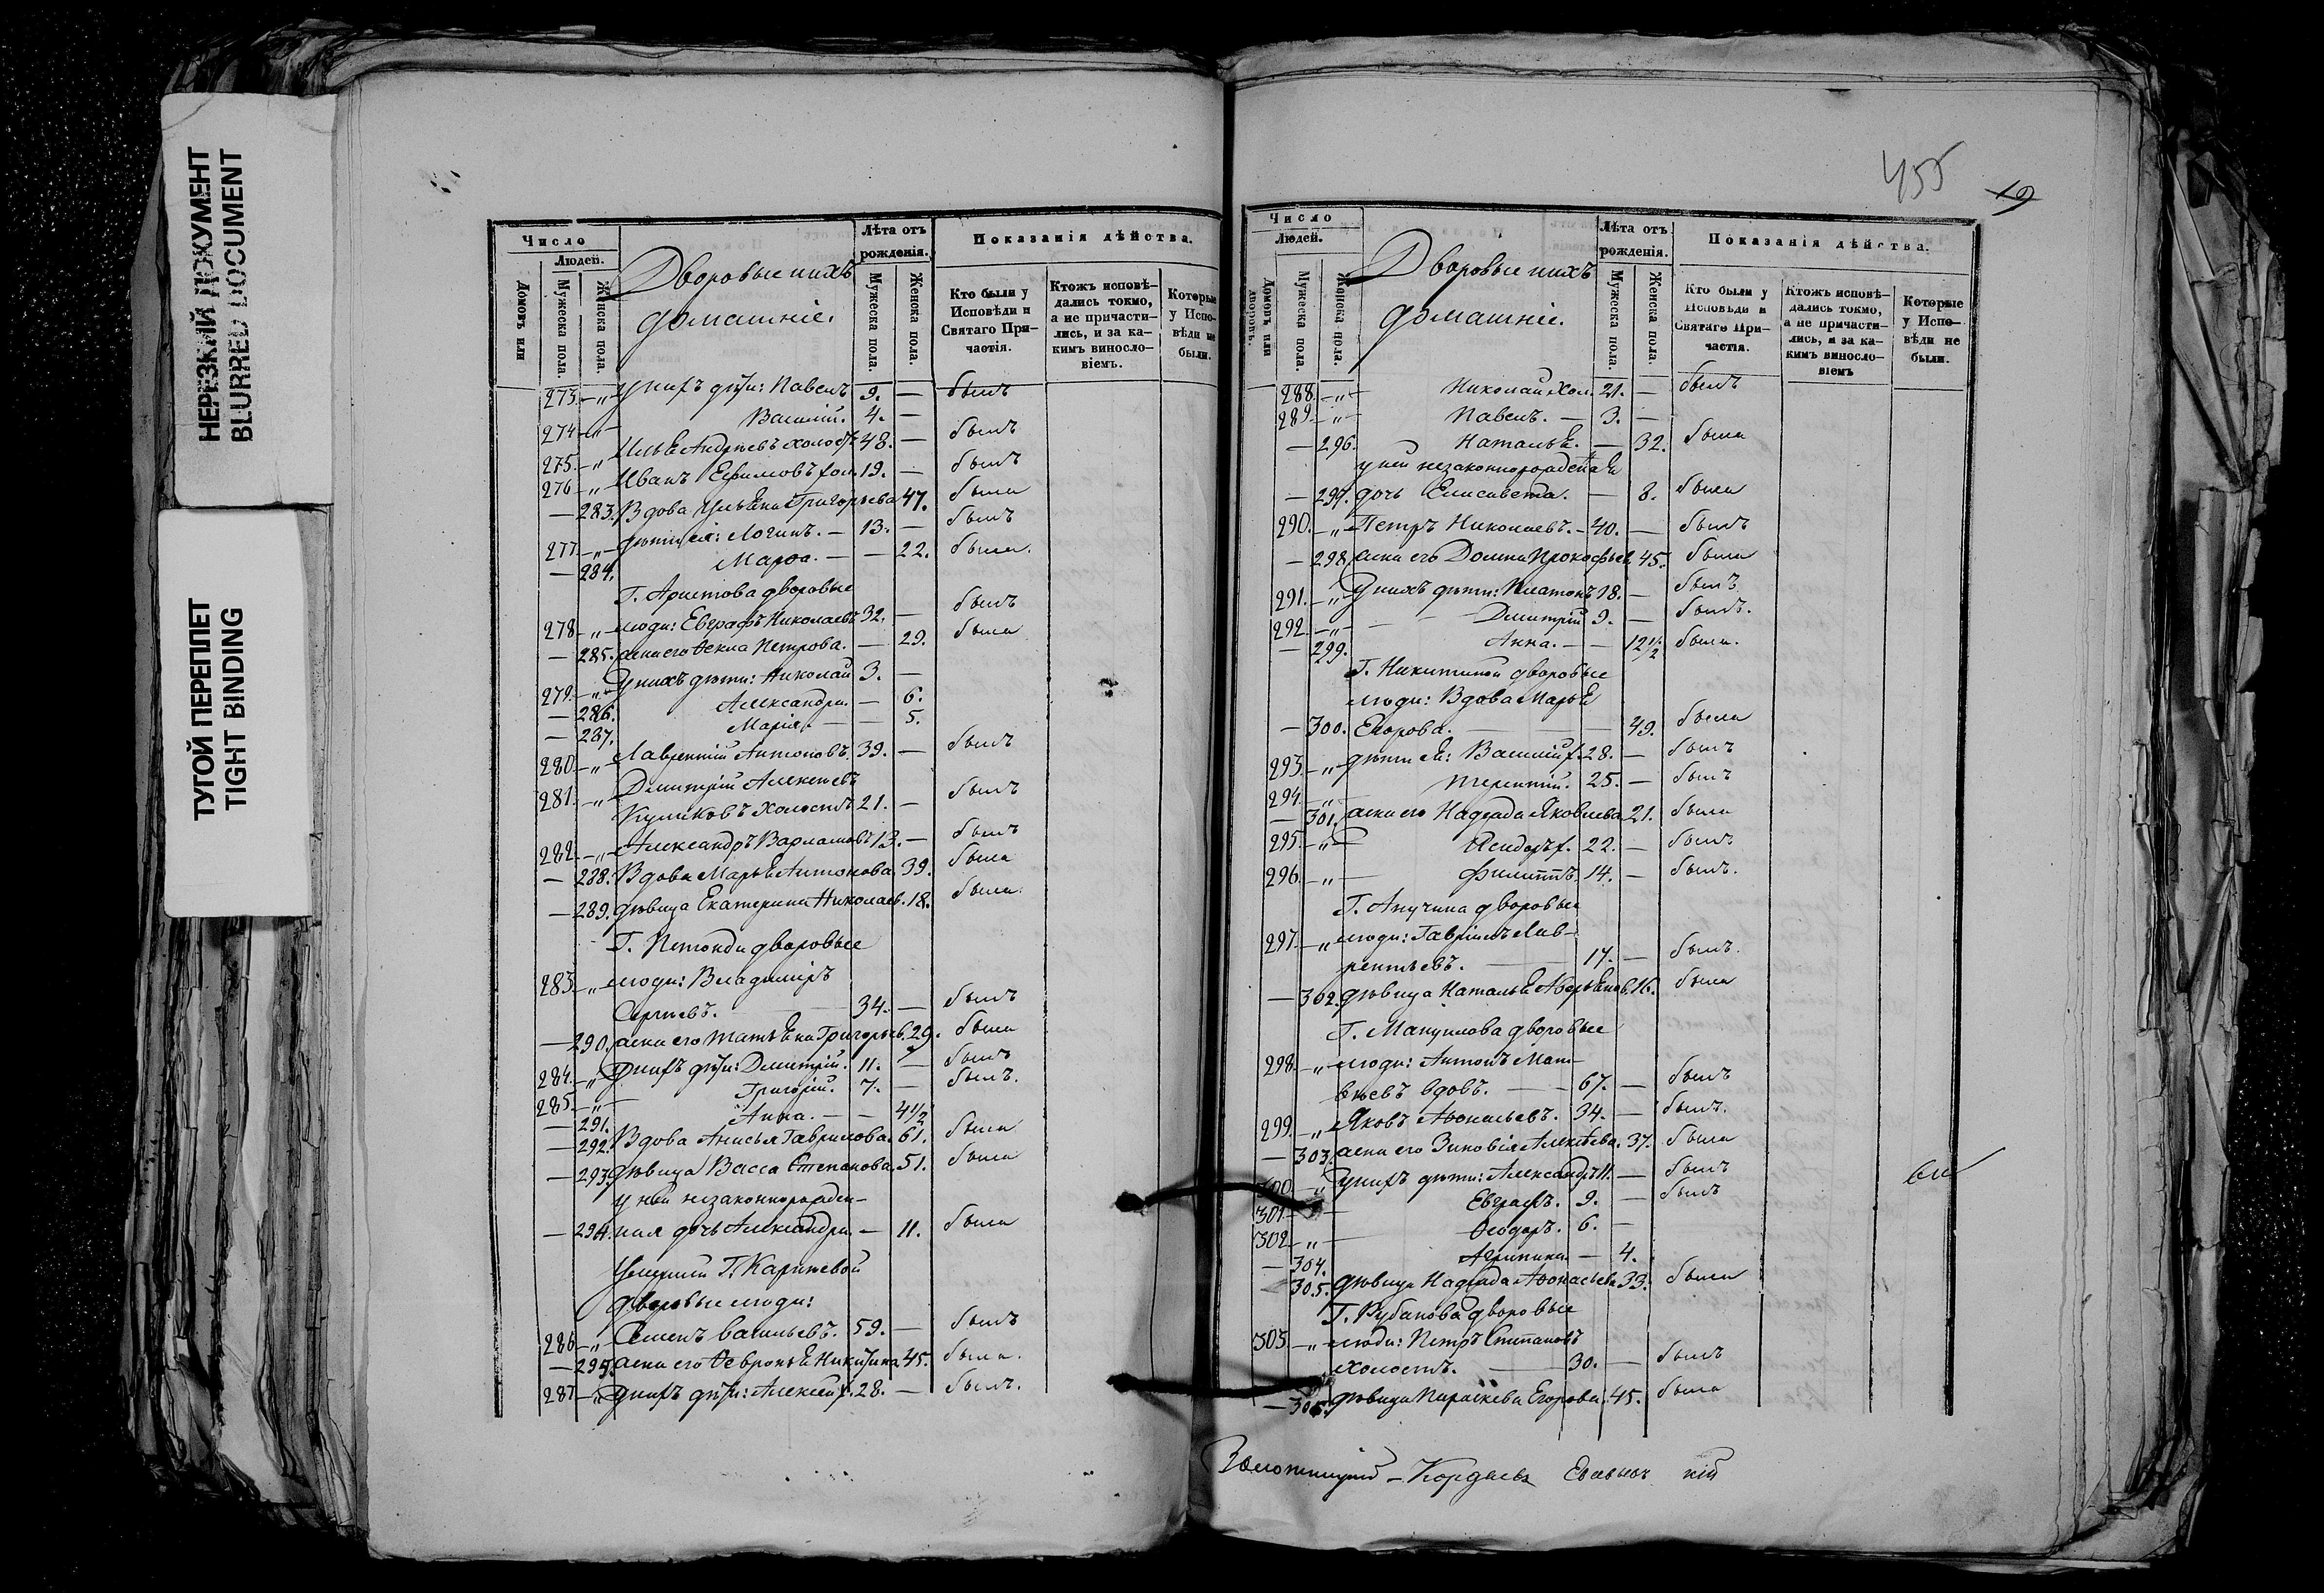 НЕРЕЗКИЙ ДОКУМЕНТ
BLURRED DOCUMENT
ТУГОЙ ПЕРЕПЛЕТ
TIGHT BINDING
Число
Людей.
Домовъ или
Мужеска пола.
Женска пола.
Дворовые и ихъ
домашніе.
Лѣта отъ
рожденія.
Мужеска пола.
Женска пола.
Показанія дѣйства.
Кто были у
Исповѣди и
Святаго При-
частія.
Ктожъ исповѣ-
дались токмо,
а не причасти-
лись, и за ка-
кимъ виносло-
віемъ.
Которые
у Испо-
вѣди не
были.
273. — „ — У нихъ дѣти: Павелъ 9. — былъ
274 — „ — Василій. 4. —
275. — „ Илья Андреевъ холостъ 48. — былъ
276 — „ Иванъ Ефимовъ хол. 19. — былъ
— 283. Вдова Ульяна Григорьева 47. была
277 — „ — дѣти ея: Логинъ. — 13. — былъ
— 284. Марѳа. — — 22. была.
Г. Аристова дворовые
278 — „ — люди: Евграфъ Николаевъ 32. — былъ
— 285. жена его Ѳекла Петрова. — 29. была
279. — „ — У нихъ дѣти: Николай 3. —
— 286. Александра. — 6.
— 287. Марія. — — 5.
280. — „ — Лаврентій Антоновъ. 39. — былъ
281. — „ Димитрій Алексѣевъ
Куликовъ холостъ 21. — былъ
282. — „ — Александръ Варламовъ 13. — былъ
— 288. Вдова Марья Антонова 39. была
— 289. дѣвица Екатерина Николаев. 18. была.
Г. дворовые
283. — „ — люди: Владиміръ
Сергѣевъ. 34. — былъ
— 290. жена его Татьяна Григорьев. 29. была
284. — „ У нихъ дѣти: Димитрій. 11. — былъ
285. — „ — Григорій. 7. — былъ.
— 291. Анна. — — 4 1/2
— 292. Вдова Анисья Гаврилова. 61. была
— 293. дѣвица Васса Степанова. 51. была
у ней незаконнорожден-
— 294. ная дочь Александра — 11. была
Умершей Г. Каринѣевой
дворовые люди:
286 — „ — Семенъ Васильевъ. 59. — былъ
— 295. жена его Ѳевронья Никитина 45. была.
287 — „ У нихъ дѣти: Алексѣй х. 28. — былъ.
455
19
Число
Людей.
Домовъ или
дворовъ.
Мужеска пола.
Женска пола.
Дворовые и ихъ
домашніе.
Лѣта отъ
рожденія.
Мужеска пола.
Женска пола.
Показанія дѣйства.
Кто были у
Исповѣди и
Святаго При-
частія.
Ктожъ исповѣ-
дались токмо,
а не причасти-
лись, и за ка-
кимъ виносло-
віемъ
Которые
у Испо-
вѣди не
были.
288. — „ — Николай хол. 21. — былъ
289. — „ — Павелъ. — 3. —
— 296. Наталья. — 32. была
у ней незаконнорожденная
— 297. дочь Елисавета. — 8. была
290. — „ — Петръ Николаевъ. — 40. — былъ
— 298. жена его Домна Прокофьев. 45. была
291. — „ У нихъ дѣти: Платонъ 18. — былъ
292. — „ — Димитрій 9. — былъ.
— 299. Анна. — — 12 1/2 была.
Г. Никитиной дворовые
люди: Вдова Марья
— 300. Егорова. — 49. была
293. — „ — дѣти ея: Василій х. 28. — былъ
294. — „ — Терентій. 25. — былъ
— 301. жена его Надежда Яковлева 21. была
295. — „ — Исидоръ х. 22. — былъ
296. — „ — Филиппъ. 14. — былъ.
Г. Анучина дворовые
297. — „ — люди: Гавріилъ Лав-
рентьевъ. — 17. — былъ.
— 302. дѣвица Наталья Аверьянов. 16. была
Г. Манунлова дворовые
298. — „ — люди: Антонъ Мат-
вѣевъ вдовъ. — 67. — былъ
299. — „ Яковъ Аѳонасьевъ. 34. — былъ.
— 303. жена его Зиновія Алексѣева. 37. была
300 — „ У нихъ дѣти: Александръ 11. — былъ
301 — Евграфъ. 9. — былъ
302 — „ — Ѳеодоръ. 6. —
— 304. Агрипина — 4.
— 305. дѣвица Надежда Аѳонасьева 33. была
Г. Рубанова дворовые
303. — „ — люди: Петръ Степановъ
холостъ. — 30. — былъ
— 306. дѣвица Параскева Егорова. 45. была